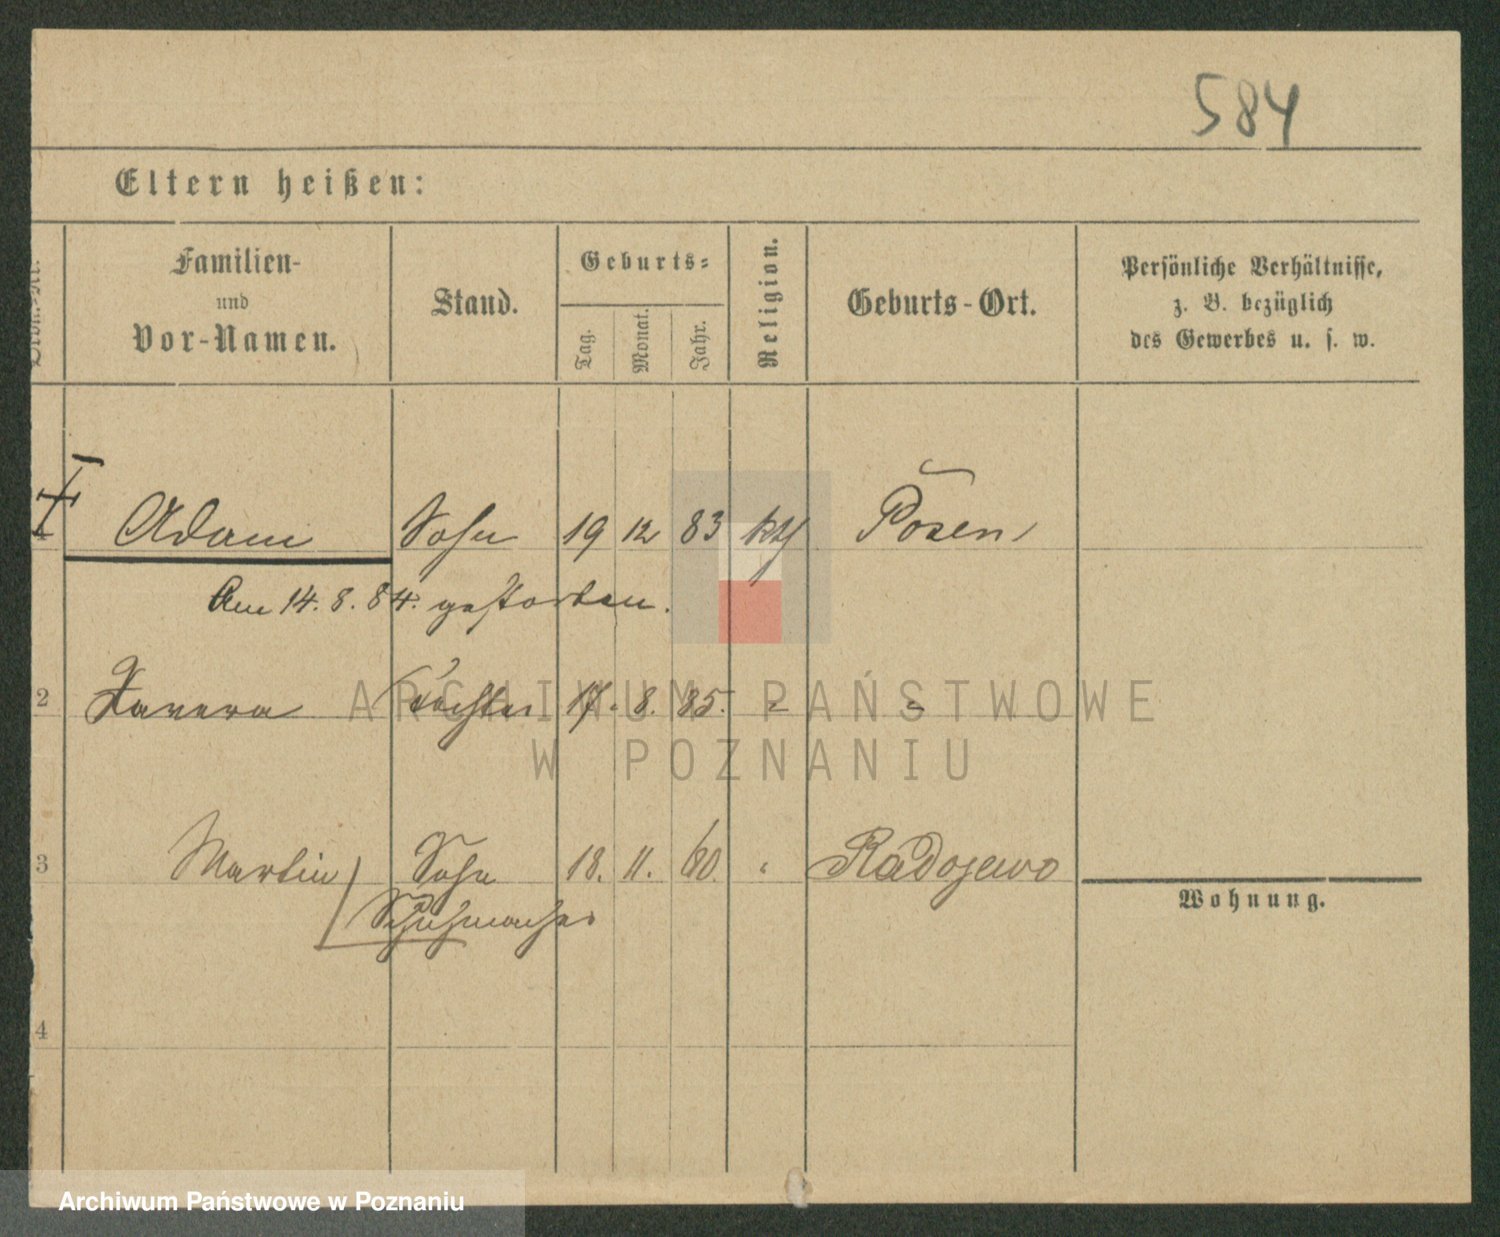 584
Eltern heißen:
Ordn.-Nr.
Familien-
und
Vor-Namen.
Stand.
Geburts-
Tag.
Monat.
Jahr.
Religion.
Geburts-Ort.
Persönliche Verhältnisse,
z. B. bezüglich
des Gewerbes u. s. w.
1 Adam Sohn 19 12 83 kth Posen
Am 14. 8. 84. gestorben.
2 Xavera Tochter 17. 8. 85. " "
3 Martin Sohn 18. 11. 80. " Radojewo
Schuhmacher
Wohnung.
4
ARCHIWUM PAŃSTWOWE
W POZNANIU
Archiwum Państwowe w Poznaniu